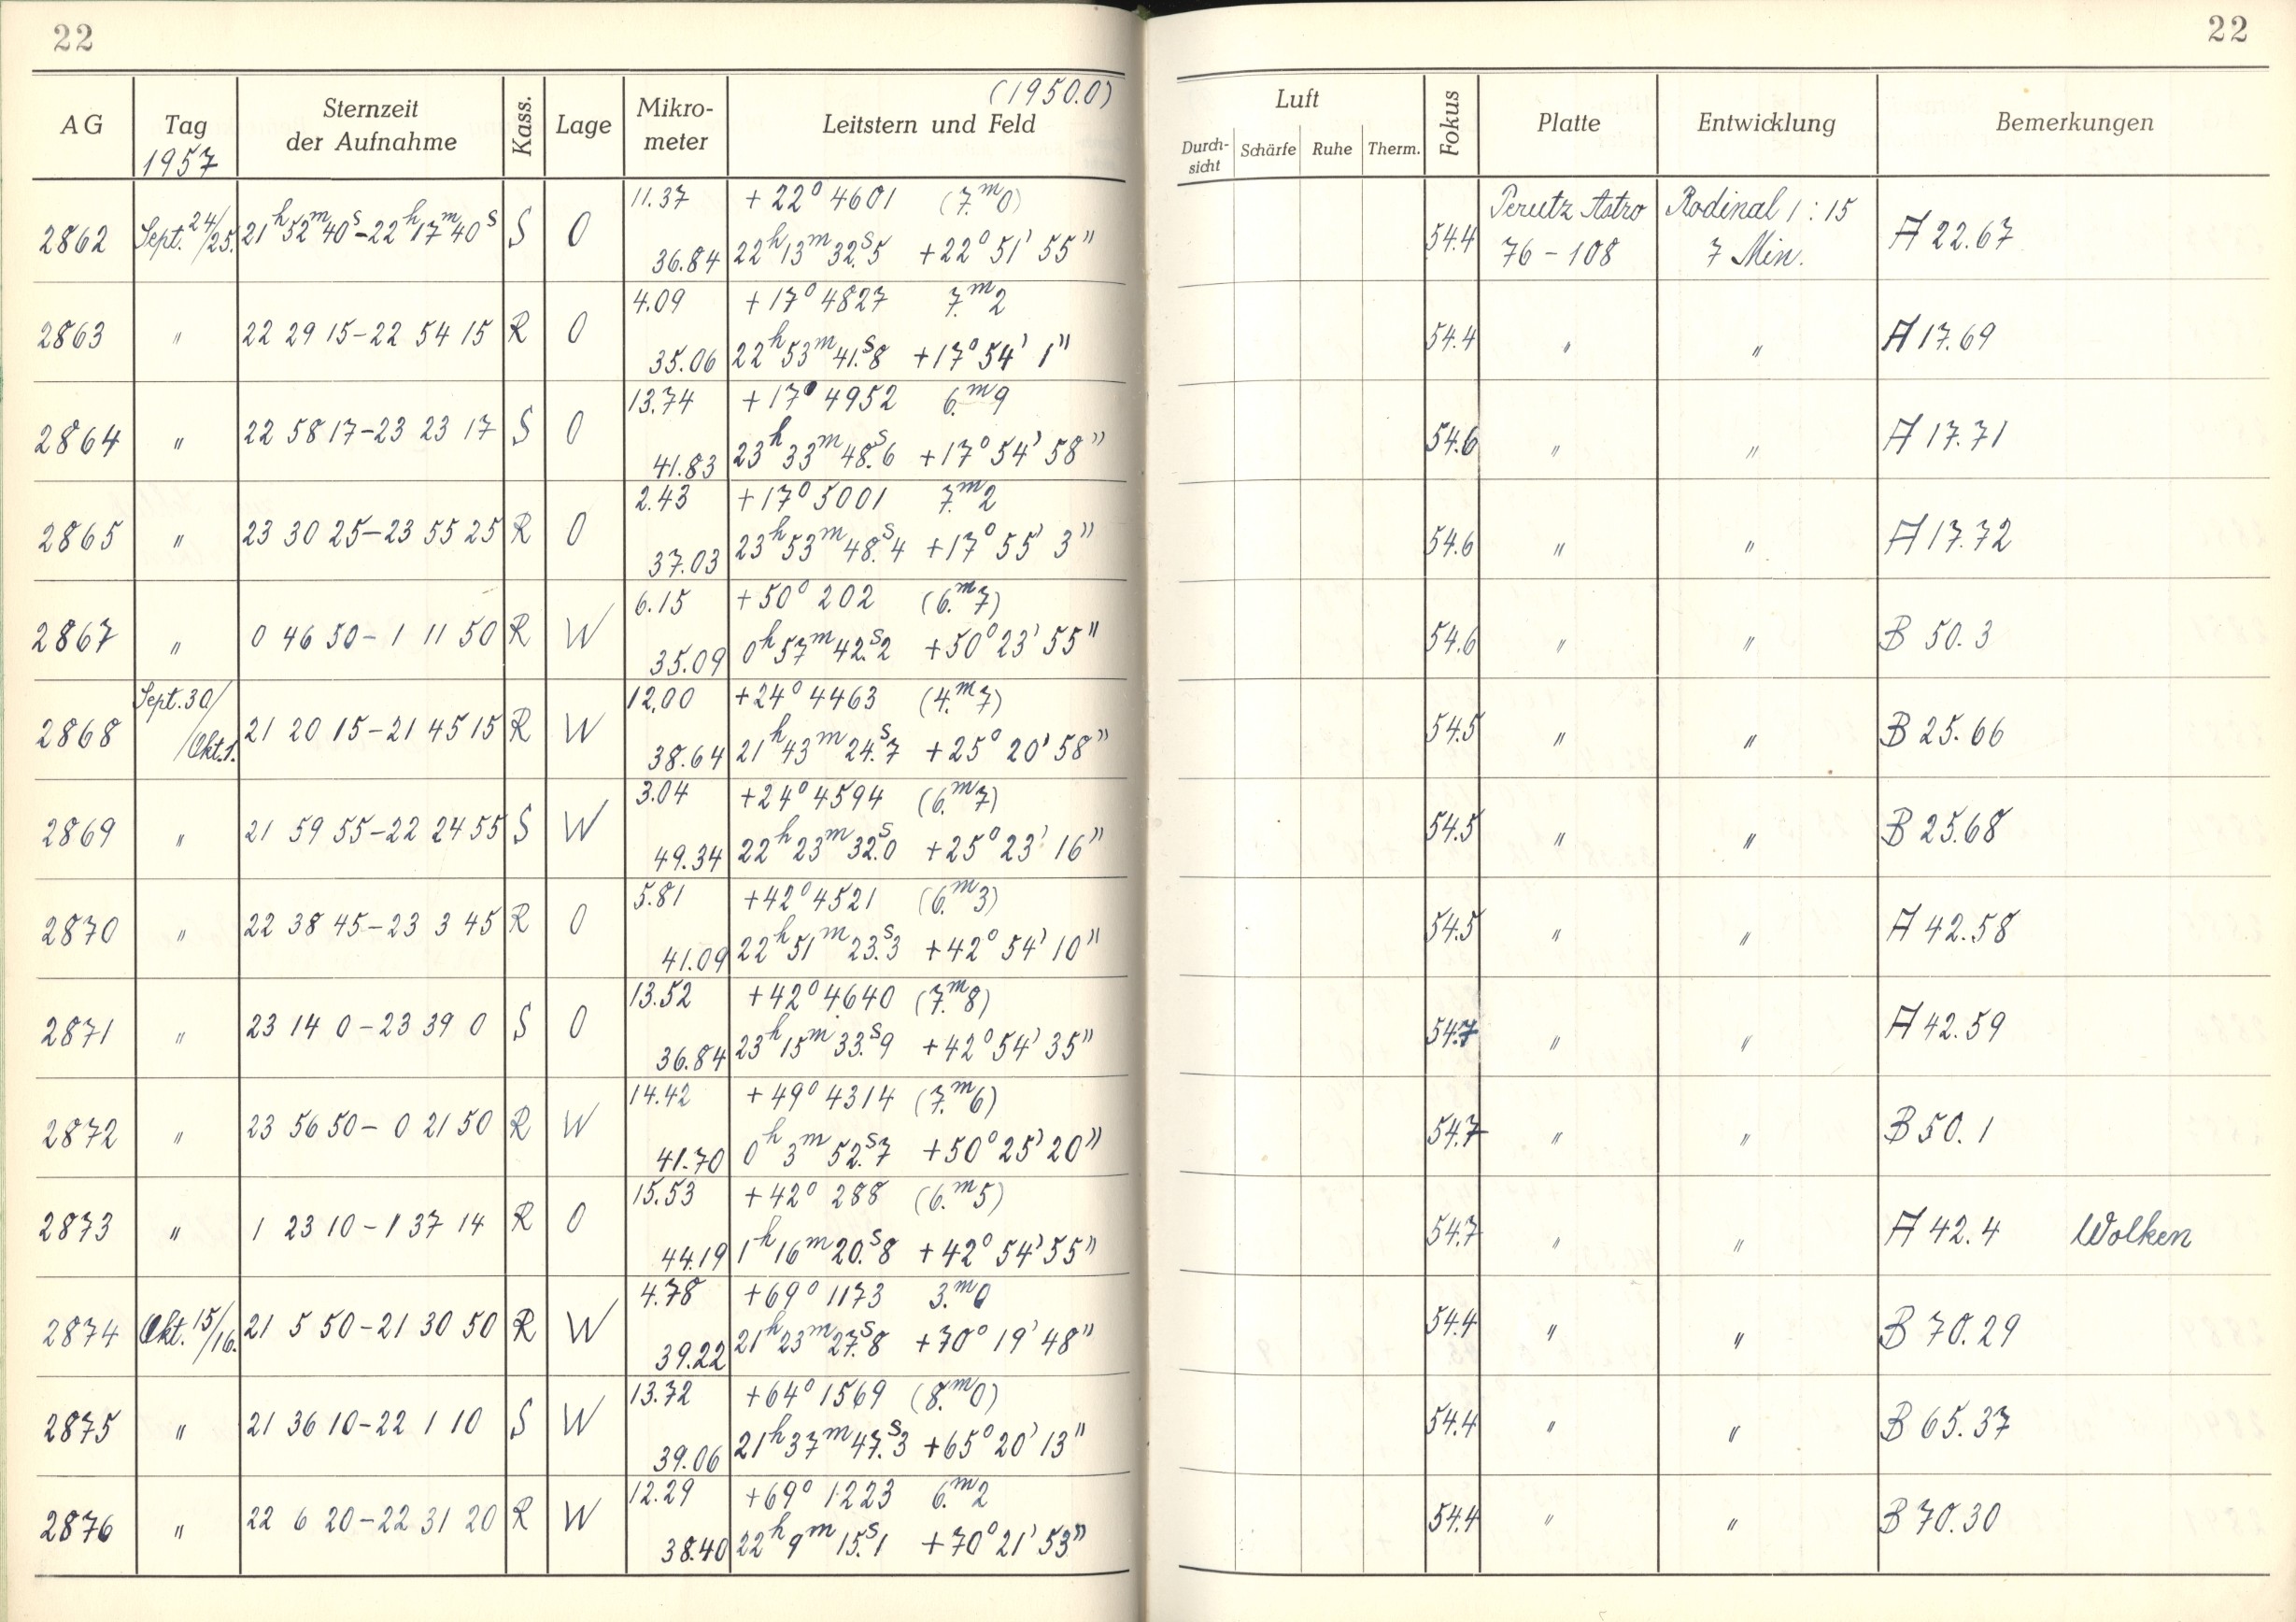 22
22
AG
Tag
1957
Sternzeit
der Aufnahme
Kass.
Lage
Mikro-
meter
(1950.0)
Leitstern und Feld
Luft
Durch-
sicht
Schärfe
Ruhe
Therm.
Fokus
Platte
Entwicklung
Bemerkungen
2862 Sept. 24/25. 21h 52m 40s - 22h 17m 40s S O 11.37 + 22° 4601 (7.m0)
36.84 22h 13m 32.s5 + 22° 51' 55" 54.4 Perutz Astro 76 - 108 Rodinal 1 : 15 7 Min. A 22.67
2863 " 22 29 15 - 22 54 15 R O 4.09 + 17° 4827 7.m2
35.06 22h 53m 41.s8 + 17° 54' 1" 54.4 " " A 17.69
2864 " 22 58 17 - 23 23 17 S O 13.74 + 17° 4952 6.m9
41.83 23h 33m 48.s6 + 17° 54' 58" 54.6 " " A 17.71
2865 " 23 30 25 - 23 55 25 R O 2.43 + 17° 5001 7.m2
37.03 23h 53m 48.s4 + 17° 55' 3" 54.6 " " A 17.72
2867 " 0 46 50 - 1 11 50 R W 6.15 + 50° 202 (6.m7)
35.09 0h 57m 42.s2 + 50° 23' 55" 54.6 " " B 50.3
2868 Sept. 30/Okt. 1. 21 20 15 - 21 45 15 R W 12.00 + 24° 4463 (4.m7)
38.64 21h 43m 24.s7 + 25° 20' 58" 54.5 " " B 25.66
2869 " 21 59 55 - 22 24 55 S W 3.04 + 24° 4594 (6.m7)
49.34 22h 23m 32.s0 + 25° 23' 16" 54.5 " " B 25.68
2870 " 22 38 45 - 23 3 45 R O 5.81 + 42° 4521 (6.m3)
41.09 22h 51m 23.s3 + 42° 54' 10" 54.5 " " A 42.58
2871 " 23 14 0 - 23 39 0 S O 13.52 + 42° 4640 (7.m8)
36.84 23h 15m 33.s9 + 42° 54' 35" 54.7 " " A 42.59
2872 " 23 56 50 - 0 21 50 R W 14.42 + 49° 4314 (7.m6)
41.70 0h 3m 52.s7 + 50° 25' 20" 54.7 " " B 50.1
2873 " 1 23 10 - 1 37 14 R O 15.53 + 42° 288 (6.m5)
44.19 1h 16m 20.s8 + 42° 54' 55" 54.7 " " A 42.4 Wolken
2874 Okt. 15/16. 21 5 50 - 21 30 50 R W 4.78 + 69° 1173 3.m0
39.22 21h 23m 27.s8 + 70° 19' 48" 54.4 " " B 70.29
2875 " 21 36 10 - 22 1 10 S W 13.72 + 64° 1569 (8.m0)
39.06 21h 37m 47.s3 + 65° 20' 13" 54.4 " " B 65.37
2876 " 22 6 20 - 22 31 20 R W 12.29 + 69° 1223 6.m2
38.40 22h 9m 15.s1 + 70° 21' 53" 54.4 " " B 70.30